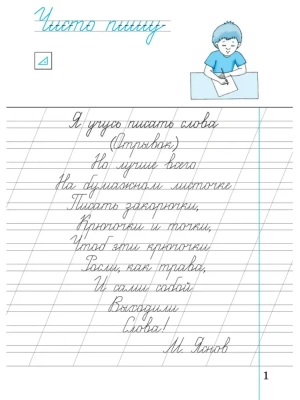 Чисто пишу
Я учусь писать слова
(Отрывок)
Но лучше всего
На бумажном листочке
Писать закорючки,
Крючочки и точки,
Чтоб эти крючочки
Росли, как трава,
И сами собой
Выходили
Слова!
М. Яснов
1